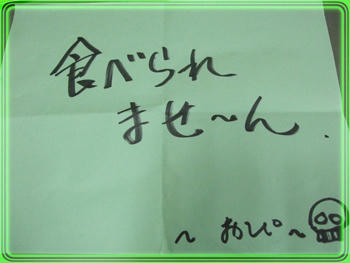 食べられ
ませ〜ん.
〜おぴ〜